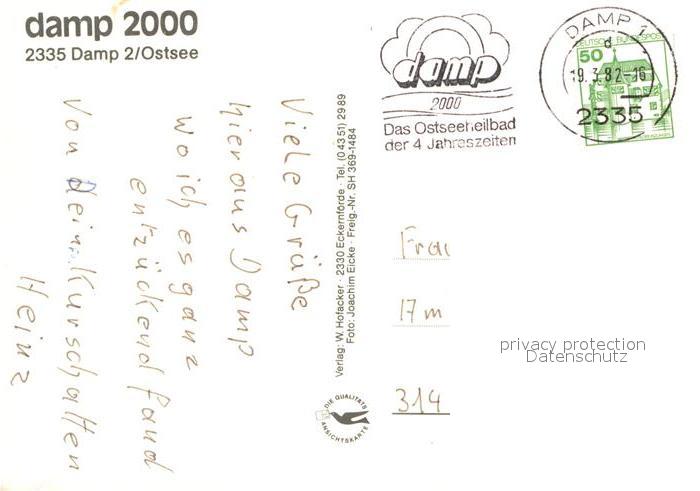 damp 2000
2335 Damp 2/Ostsee
Viele Grüße
hieraus Damp
wo ich es ganz
entzückend fand
von Kurschatten
Heinz
Verlag: W. Hofacker · 2330 Eckernförde · Tel. (0 43 51) 29 89
Foto: Joachim Eicke · Freig.-Nr. SH 369-1484
DIE QUALITÄTS
ANSICHTSKARTE
damp
2000
Das Ostseeheilbad
der 4 Jahreszeiten
DAMP 1
d
19.3.82-16
2335
DEUTSCHE BUNDESPOST
50
Frau
17m
314
privacy protection
Datenschutz